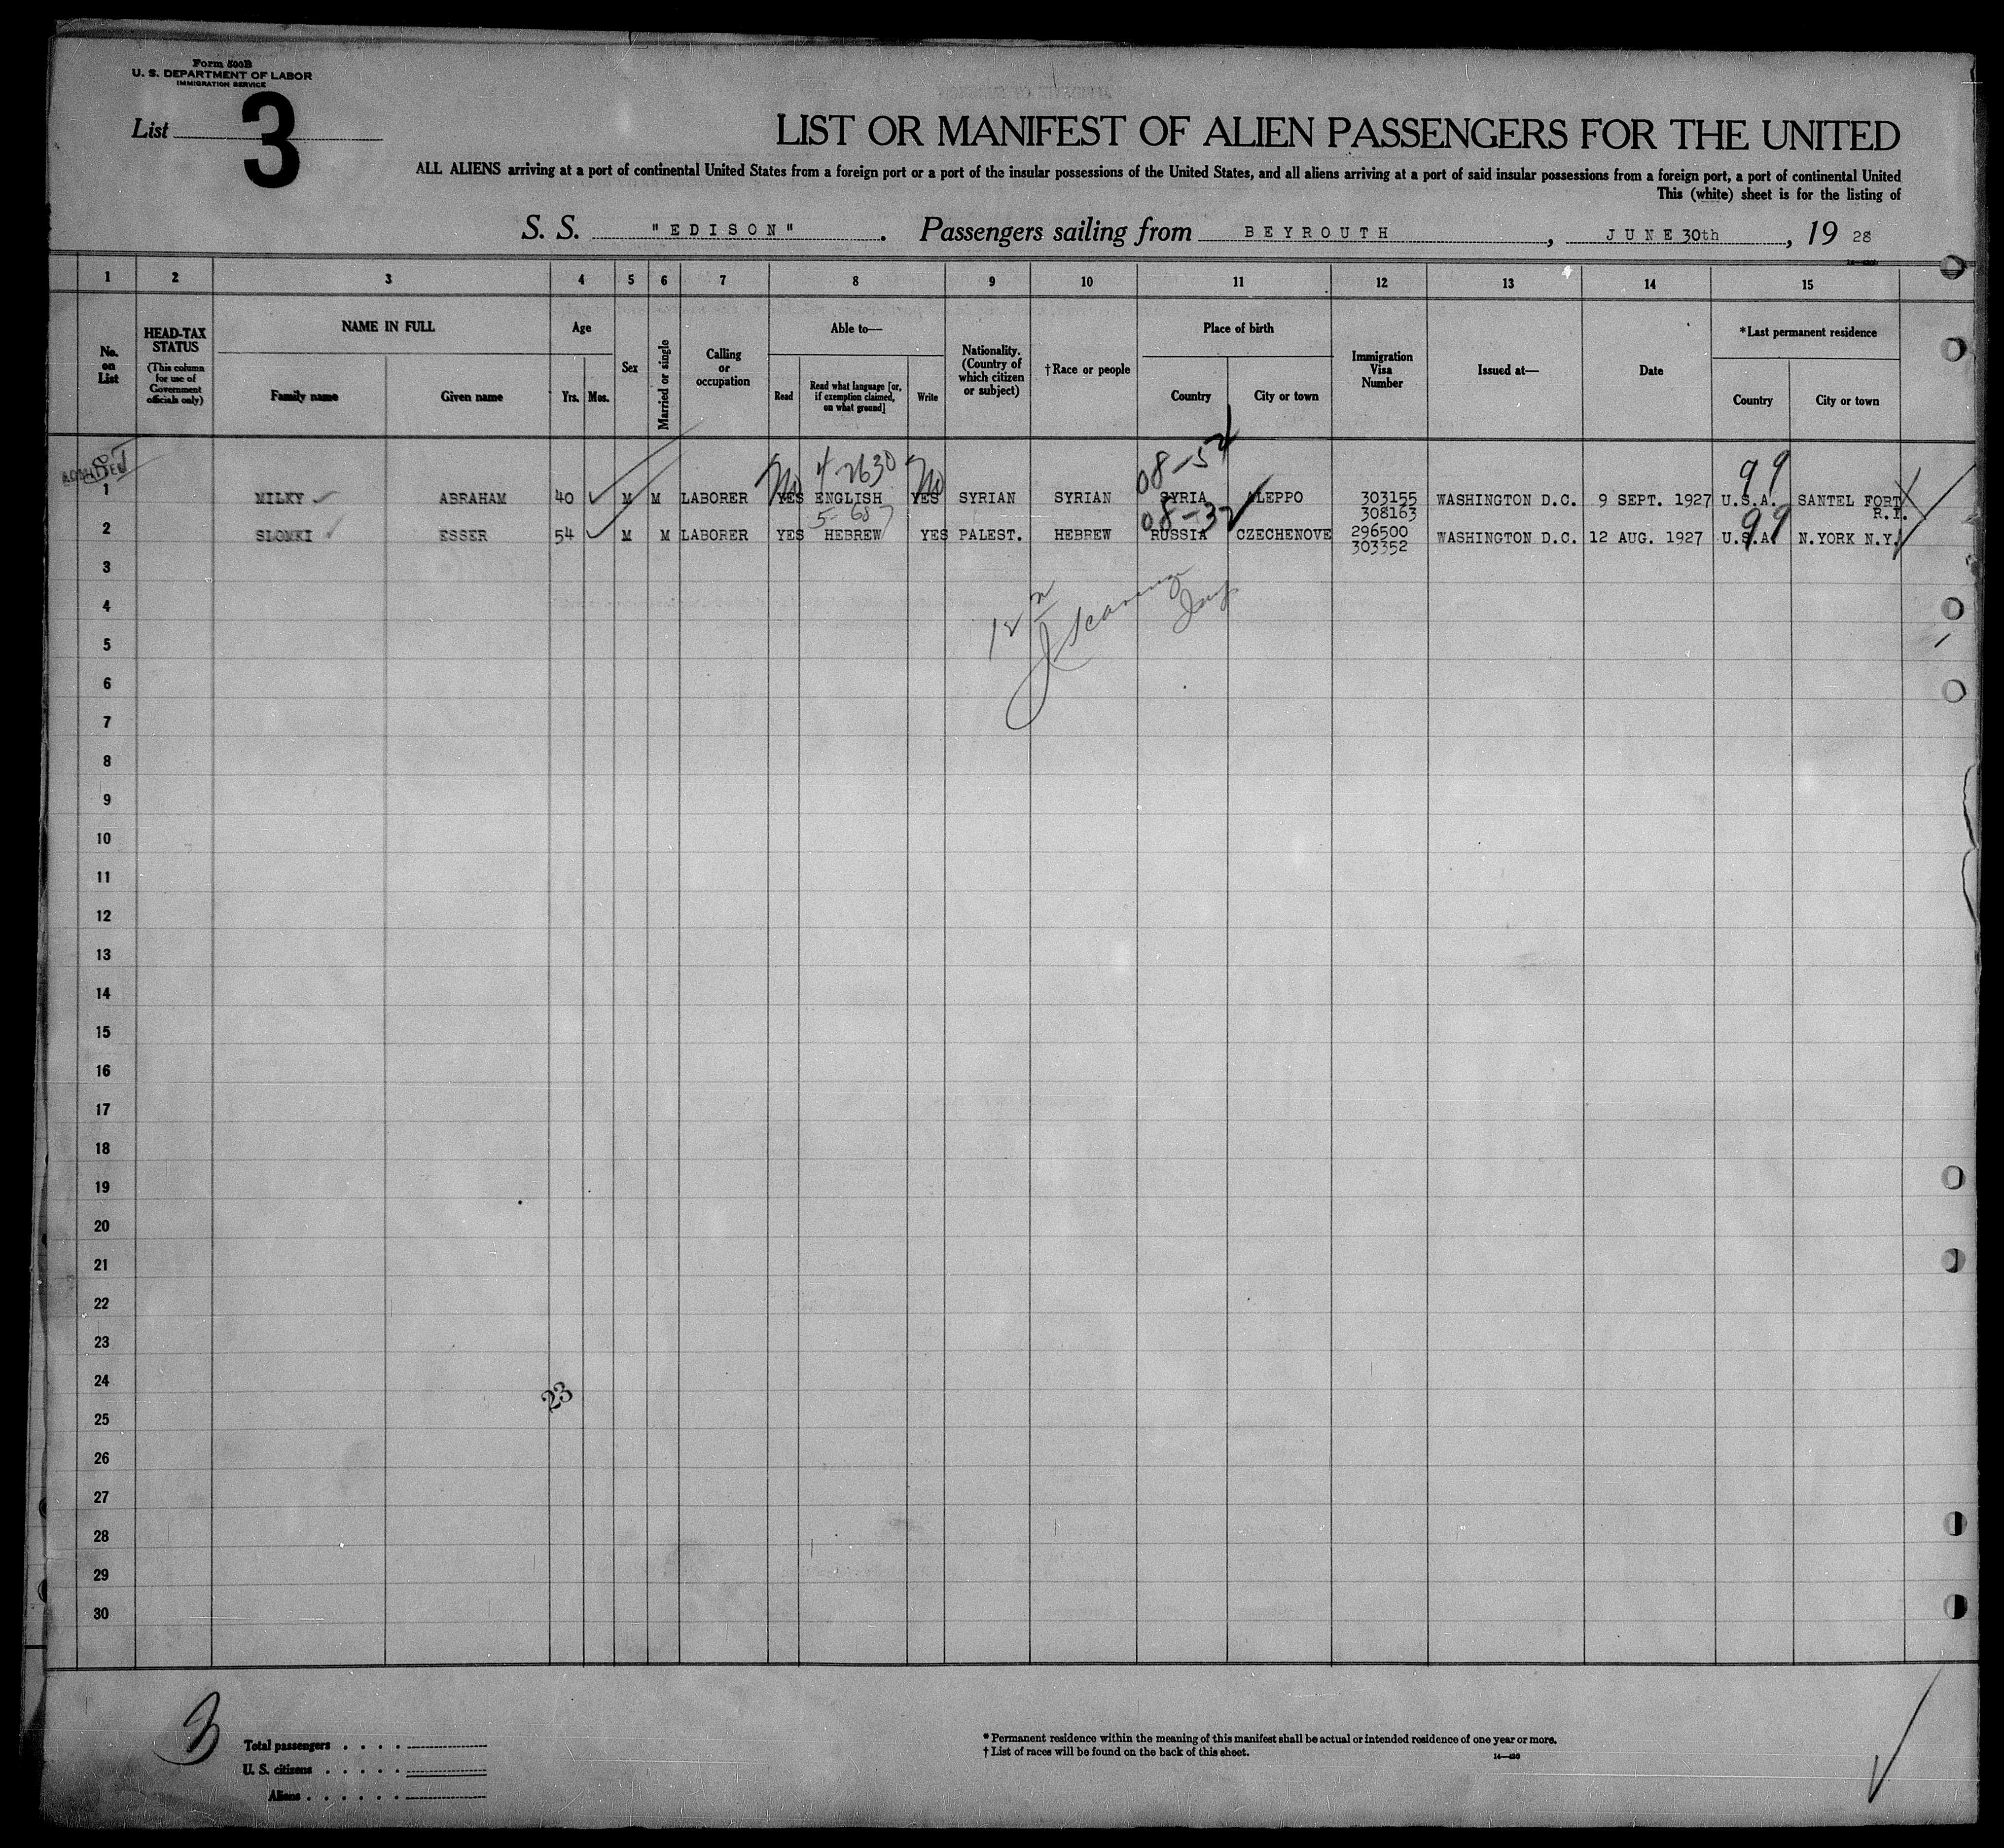 Form 500B
U. S. DEPARTMENT OF LABOR
IMMIGRATION SERVICE
List 3
LIST OR MANIFEST OF ALIEN PASSENGERS FOR THE UNITED
ALL ALIENS arriving at a port of continental United States from a foreign port or a port of the insular possessions of the United States, and all aliens arriving at a port of said insular possessions from a foreign port, a port of continental United
This (white) sheet is for the listing of
S. S. "EDISON". Passengers sailing from BEYROUTH, JUNE 30th, 19 28
1 2 3 4 5 6 7 8 9 10 11 12 13 14 15
No. on List
HEAD-TAX STATUS
(This column for use of Government officials only)
NAME IN FULL
Family name
Given name
Age
Yrs. Mos.
Sex
Married or single
Calling or occupation
Able to—
Read
Read what language [or, if exemption claimed, on what ground]
Write
Nationality. (Country of which citizen or subject)
†Race or people
Place of birth
Country
City or town
Immigration Visa Number
Issued at—
Date
*Last permanent residence
Country
City or town
ADMITTED
No 4-2630 No 08-52 99
1 MILKY ABRAHAM 40 M M LABORER YES ENGLISH YES SYRIAN SYRIAN SYRIA ALEPPO 303155 WASHINGTON D.C. 9 SEPT. 1927 U.S.A. SANTEL FORT
308163 R.I.
5-687 08-32 99
2 SLOMKI ESSER 54 M M LABORER YES HEBREW YES PALEST. HEBREW RUSSIA CZECHENOVE 296500 WASHINGTON D.C. 12 AUG. 1927 U.S.A. N.YORK N.Y.
303352
3
4
5
6
7
8
9
10
11
12
13
14
15
16
17
18
19
20
21
22
23
24
23
25
26
27
28
29
30
3
Total passengers . . . .
U. S. citizens . . . . .
Aliens . . . . . .
* Permanent residence within the meaning of this manifest shall be actual or intended residence of one year or more.
† List of races will be found on the back of this sheet.
14—430